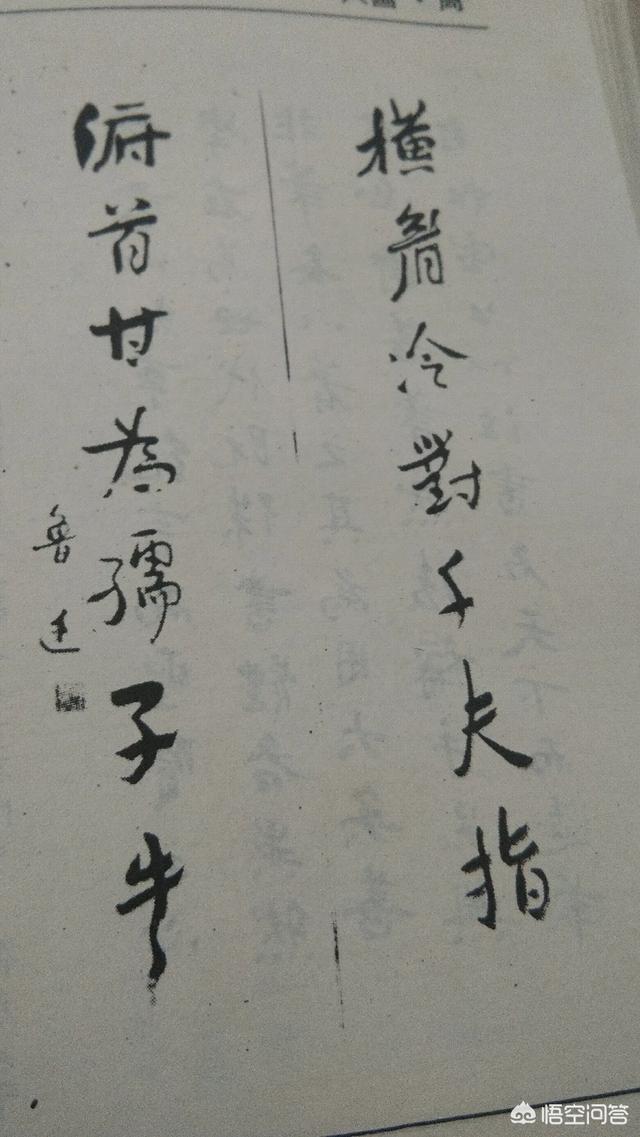 橫眉冷對千夫指
俯首甘為孺子牛
魯迅
悟空问答